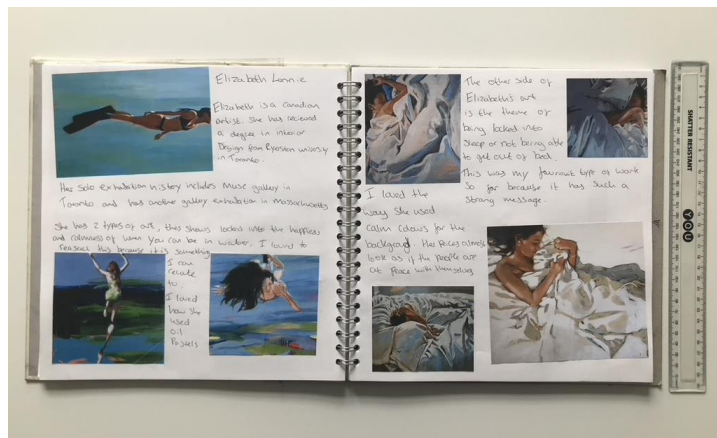 Elizabeth Lennie
Elizabeth is a Canadian
artist. She has recieved
a degree in interior
Designs from Ryerson university
in Toronto.
Her solo exhibition history includes Muse gallery in
Toronto and has another gallery exhibition in Massachusetts
She has 2 types of art, this shows looked into the happiness
and calmness of when you can be in water. I loved to
research this because it is something
I can
relate
to.
I loved
how she
used
oil
Pastels
The other side of
Elizabeth's art
is the theme of
being locked into
sleep or not being able
to get out of bed.
This was my favourite type of work
so far because it has such a
strong message.
I loved the
way she used
calm colours for the
background. The pieces almost
look as if the people are
at peace with themselves
SHATTER RESISTANT
YOU